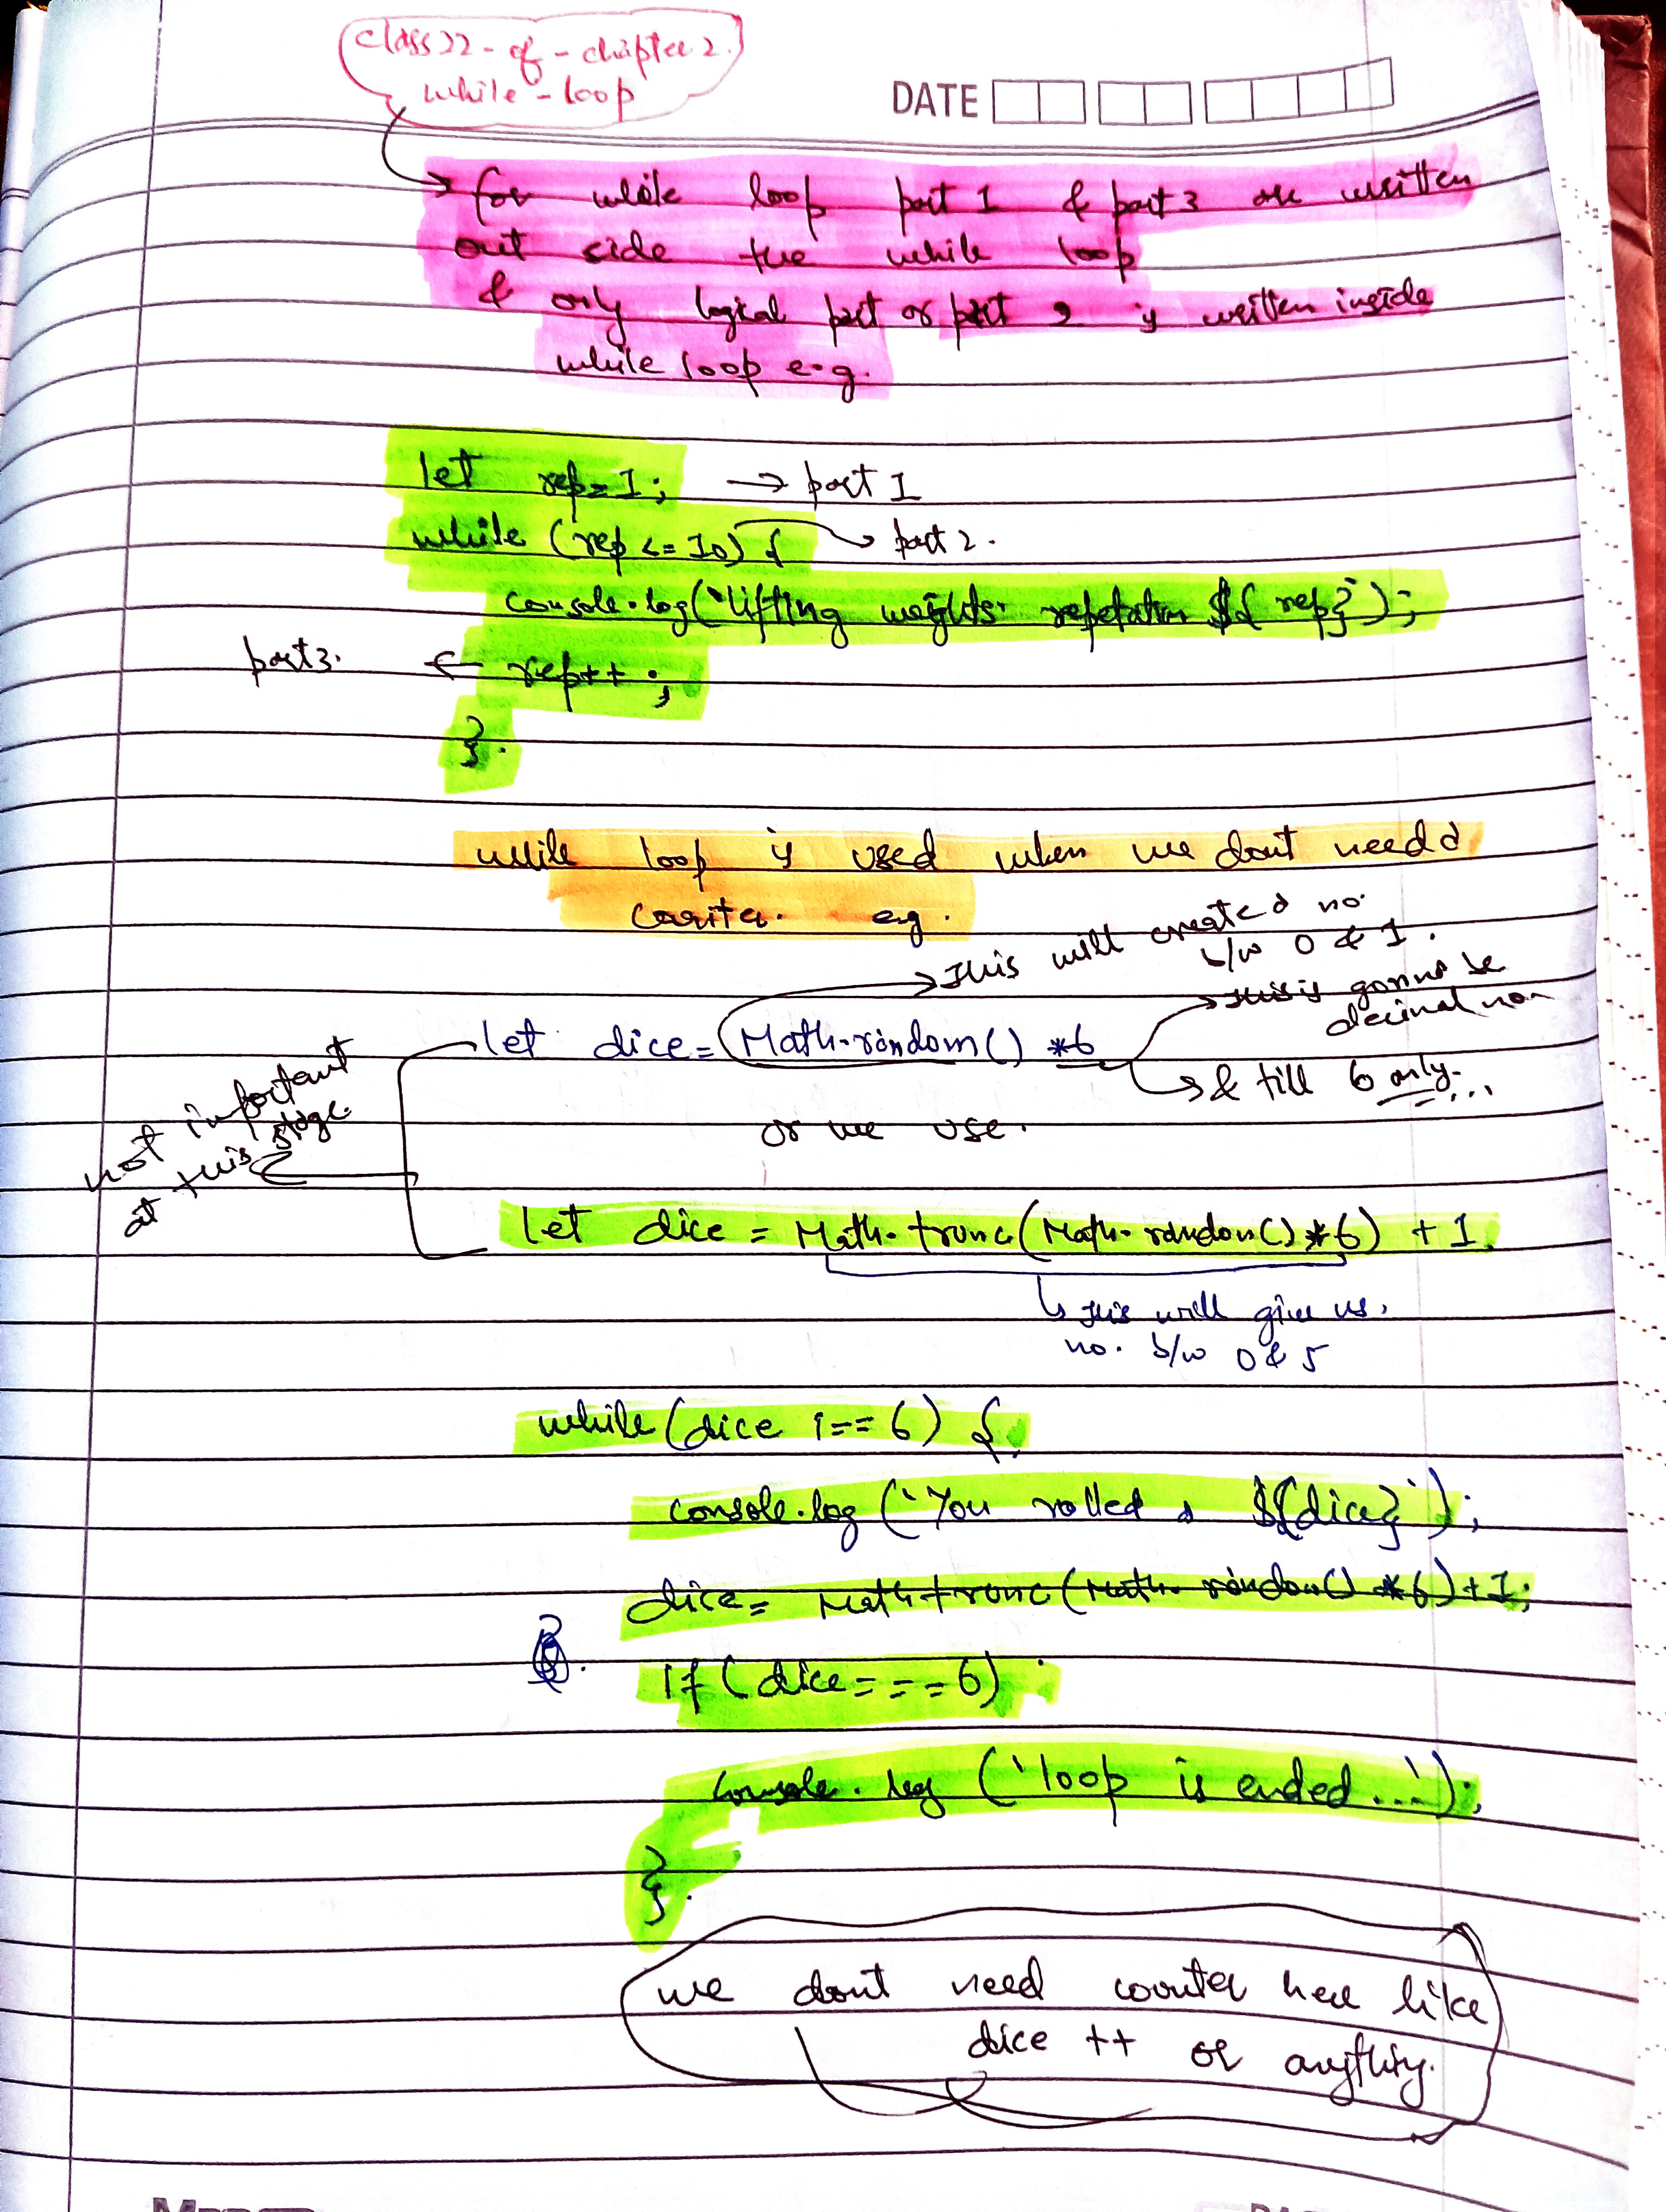 class 22 - of - chapter 2.
while - loop
DATE
for while loop part 1 & part 3 are written
out side the while loop
& only logical part or part 2 is written inside
while loop e.g.
let rep = 1; → part 1
while (rep <= 10) { → part 2.
console.log(`lifting weights repetation ${ rep}`);
part 3. ← rep++ ;
}.
while loop is used when we dont need a
counter. eg.
→ This will create a no.
b/w 0 & 1.
→ this is gonna be
decimal no
let dice = Math.random() *6
→ & till 6 only....
not important
at this stage
or we use.
let dice = Math.trunc(Math.random()*6) + 1.
↳ This will give us.
no. b/w 0 & 5
while (dice !== 6) {
console.log (`You rolled a ${dice}`);
dice = Math.trunc(Math.random() *6)+1;
if (dice === 6)
console.log (`loop is ended ...`);
}.
we dont need counter here like
dice ++ or anything.